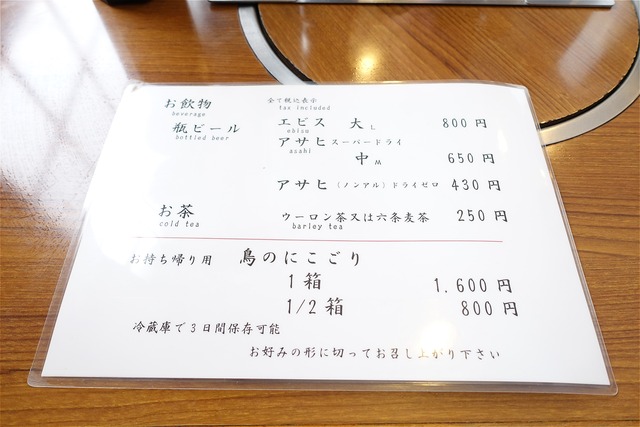 お飲物 全て税込表示
beverage tax included
瓶ビール エビス 大 L 800 円
bottled beer ebisu
アサヒスーパードライ
asahi
中 M 650 円
アサヒ (ノンアル) ドライゼロ 430 円
お茶 ウーロン茶又は六条麦茶 250 円
cold tea barley tea
お持ち帰り用 鳥のにこごり
1 箱 1.600 円
1/2 箱 800 円
冷蔵庫で3日間保存可能
お好みの形に切ってお召し上がり下さい